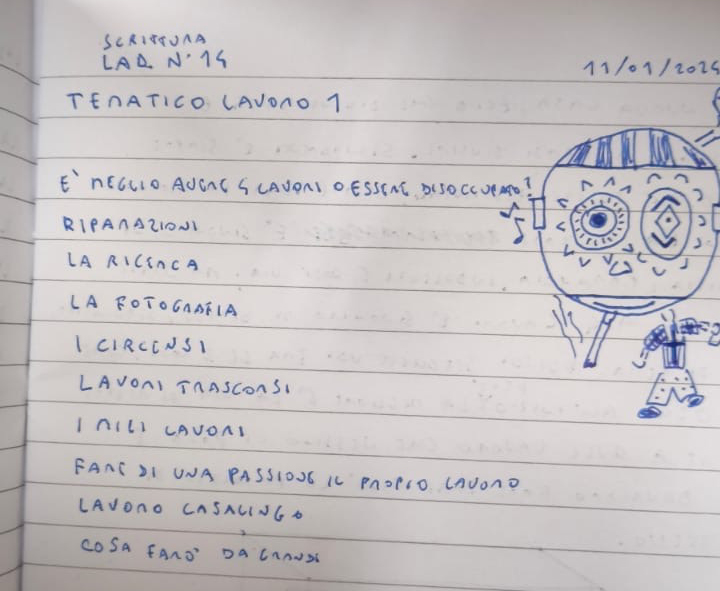 SCRITTURA
LAB. N° 14
11/01/2024
TEMATICO LAVORO 1
E' MEGLIO AVERE 4 LAVORI O ESSERE DISOCCUPATO?
RIPARAZIONI
LA RICERCA
LA FOTOGRAFIA
I CIRCENSI
LAVORI TRASCORSI
I MIEI LAVORI
FARE DI UNA PASSIONE IL PROPRIO LAVORO
LAVORO CASALINGO
COSA FARO' DA GRANDE